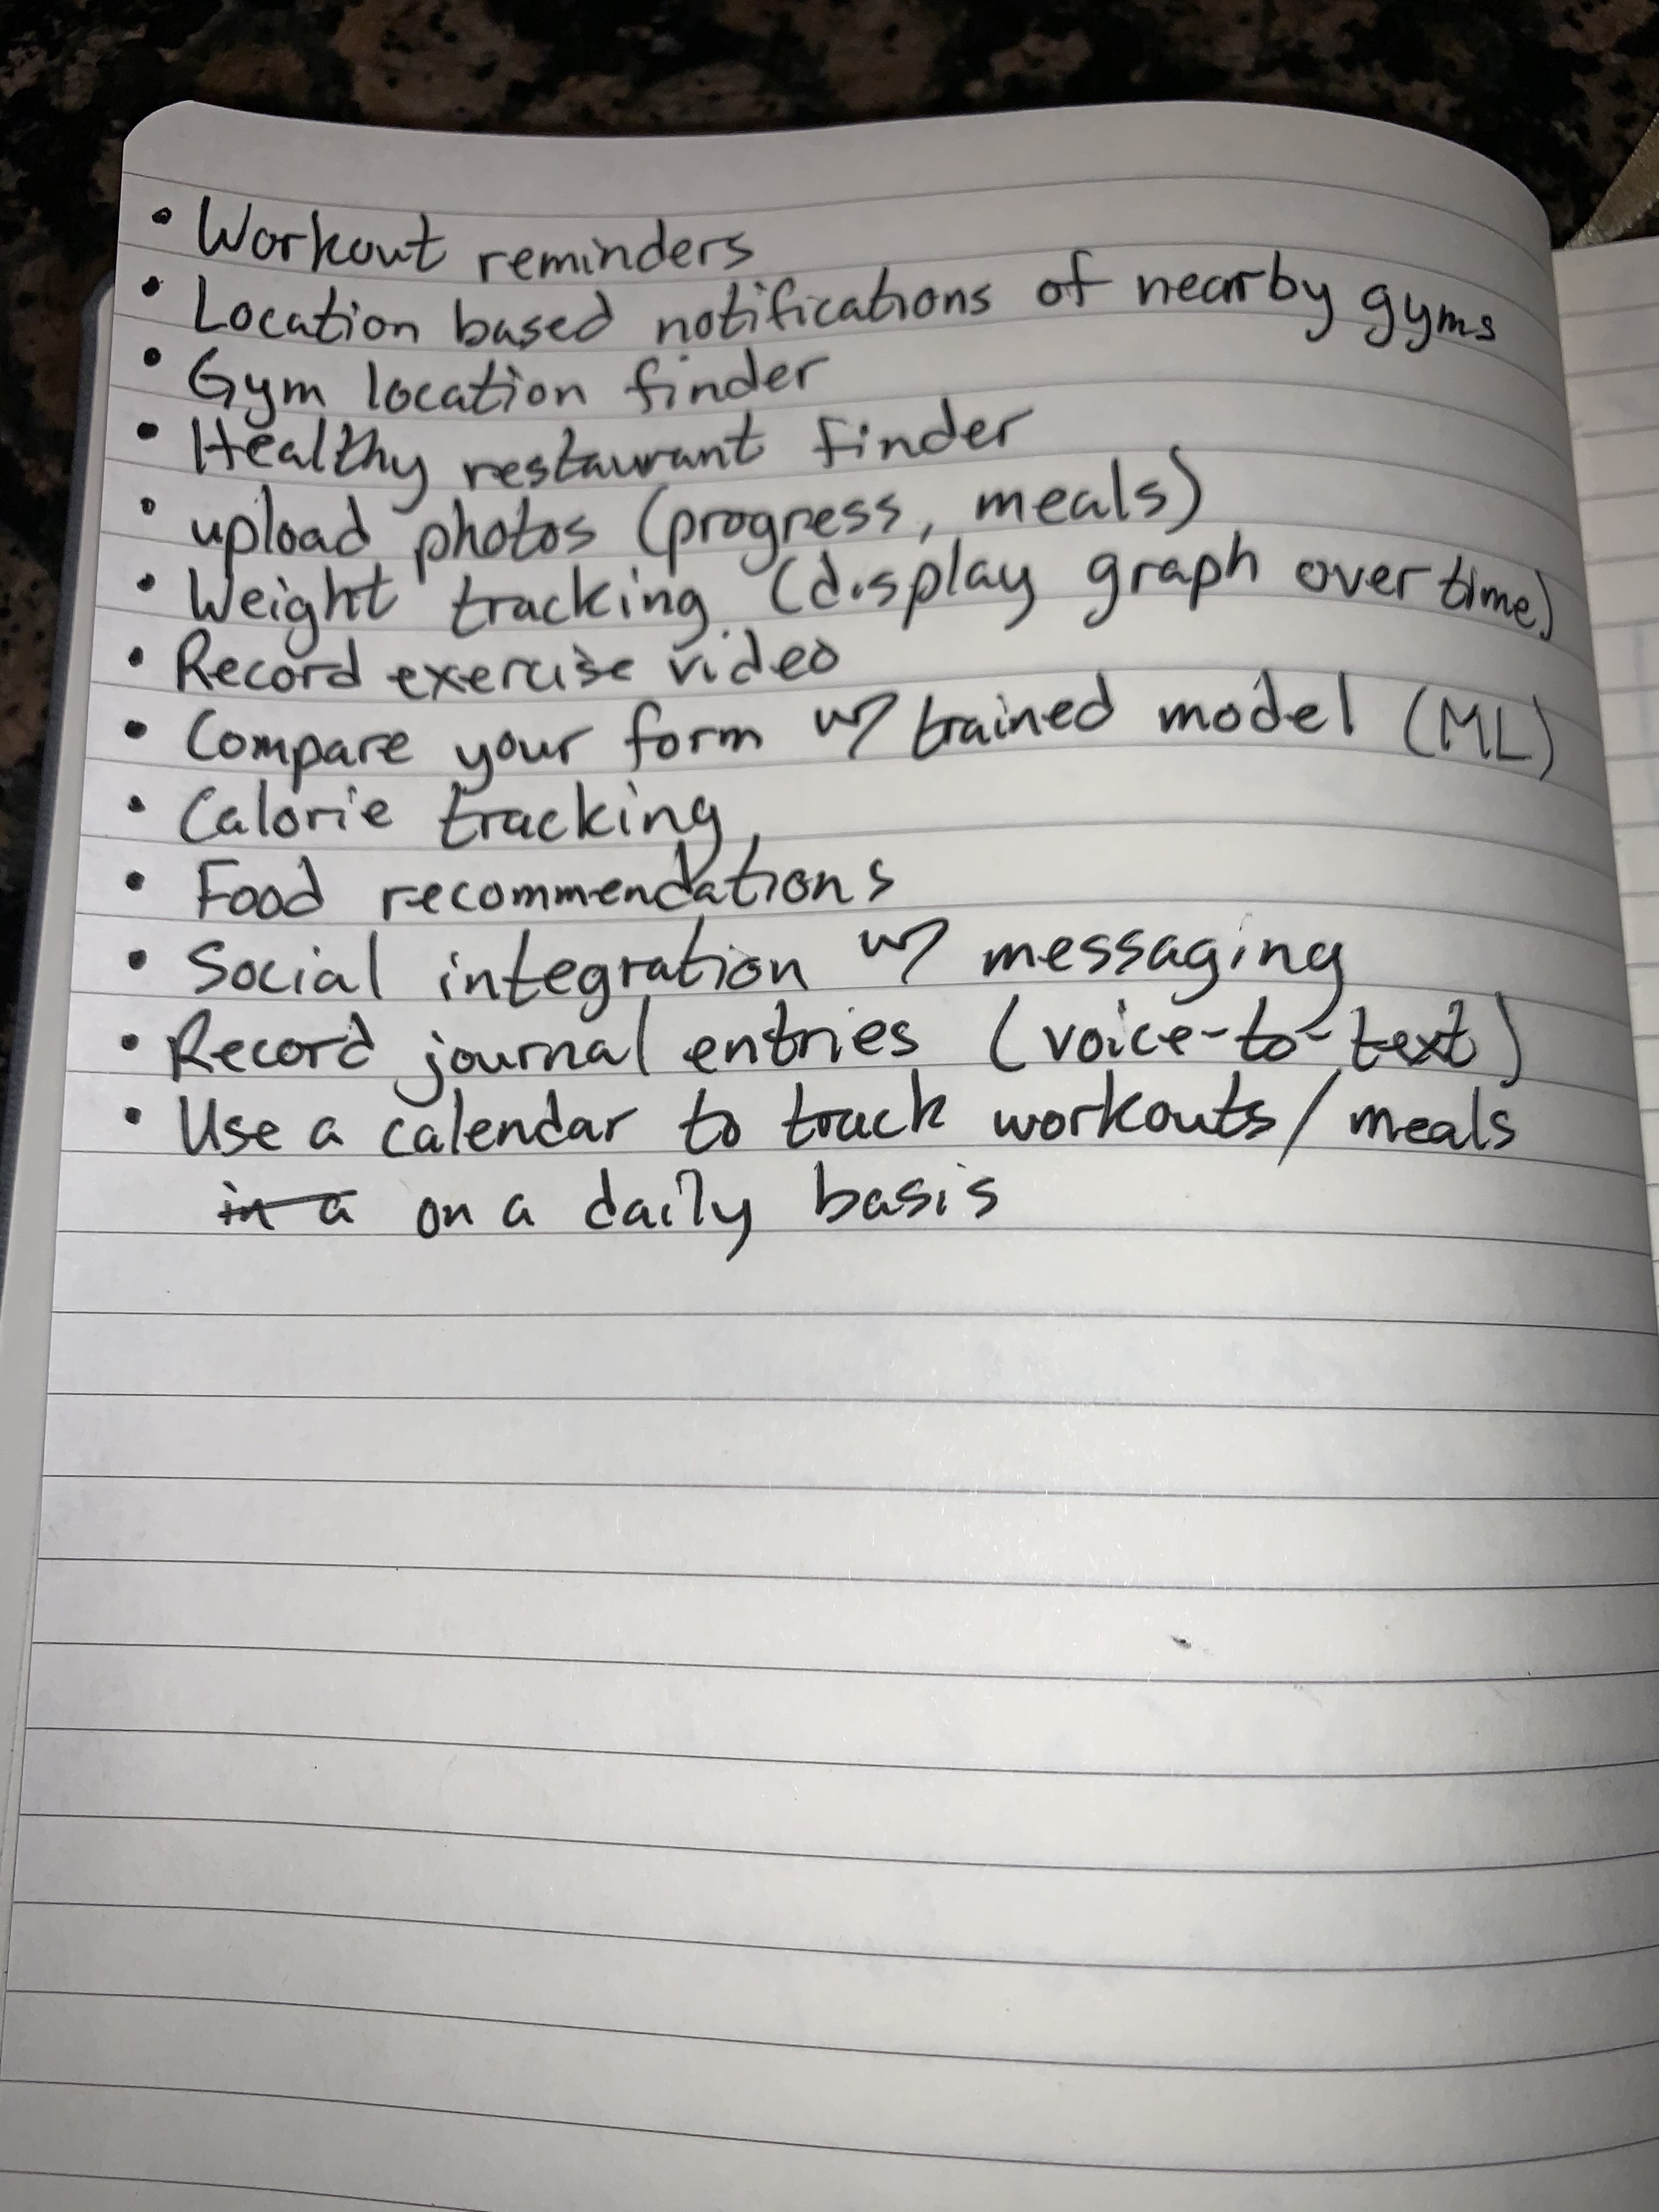 • Workout reminders
• Location based notifications of nearby gyms
• Gym location finder
• Healthy restaurant finder
• upload photos (progress, meals)
• Weight tracking (display graph over time)
• Record exercise video
• Compare your form w/ trained model (ML)
• Calorie tracking
• Food recommendations
• Social integration w/ messaging
• Record journal entries (voice-to-text)
• Use a calendar to track workouts/meals
in a on a daily basis